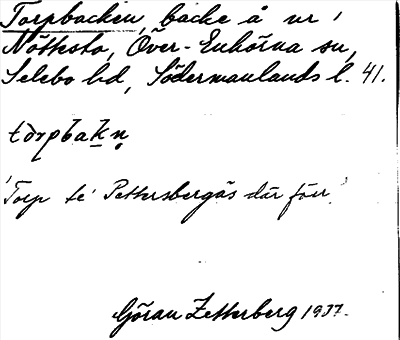 Torpbacken, backe å nr 1
Nöttesta, Över-Enhörna sn,
Selebo hd, Södermanlands l. 41.
tòrpbakn̥
'Torp te' Pettersbergäs där förr'
Göran Zetterberg 1937.